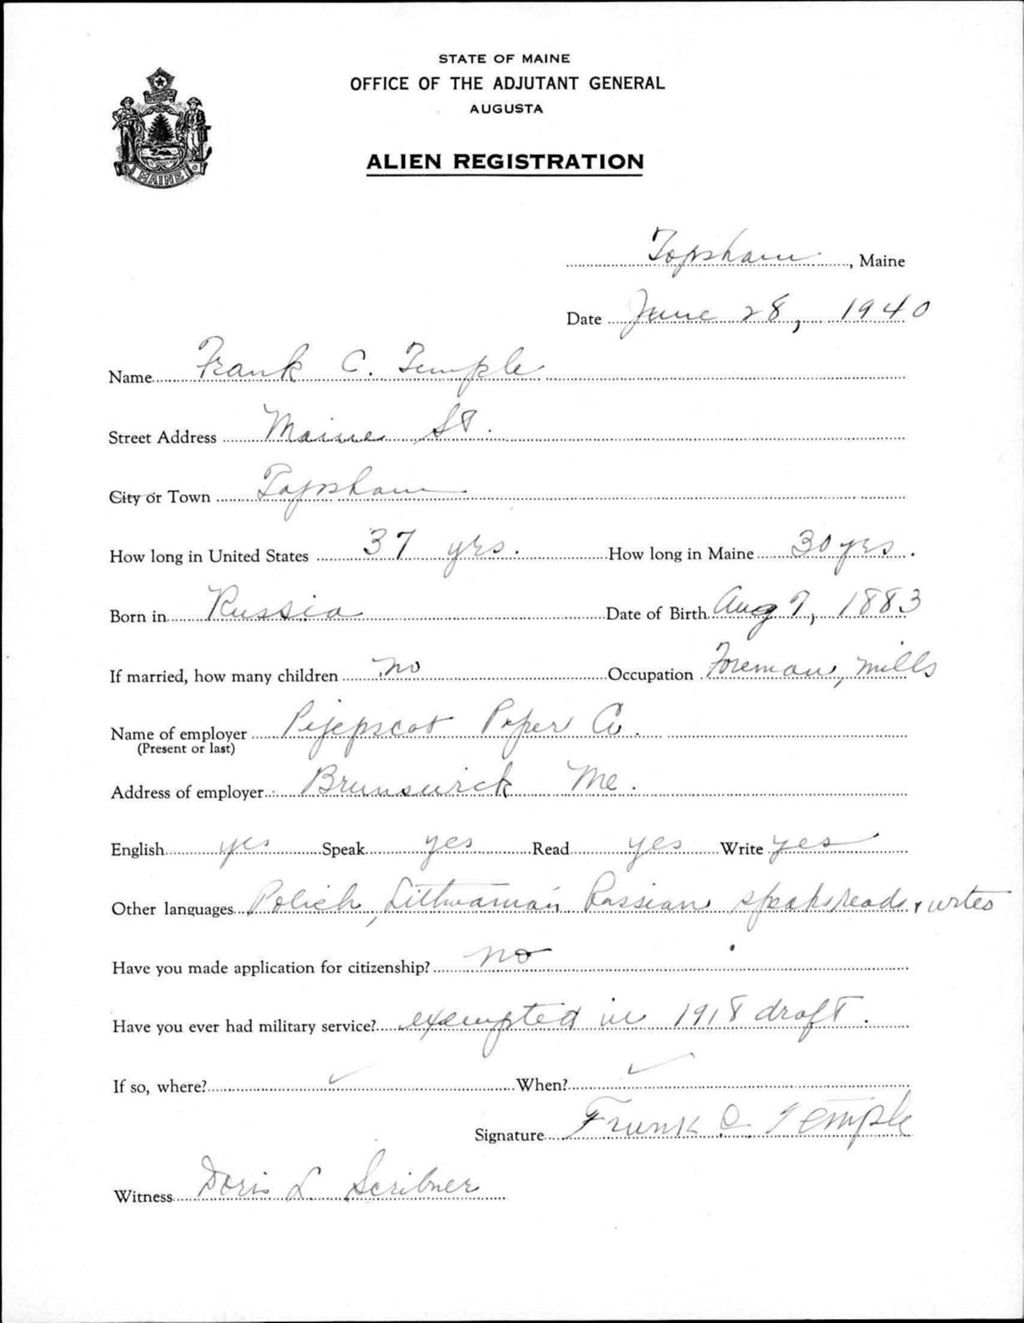 STATE OF MAINE
OFFICE OF THE ADJUTANT GENERAL
AUGUSTA
ALIEN REGISTRATION
MAINE
Topsham, Maine
Date June 28, 1940
Name Frank C. Temple
Street Address Maine St.
City or Town Topsham
How long in United States 37 yrs. How long in Maine 30 yrs.
Born in Russia Date of Birth Aug 7, 1883
If married, how many children no Occupation Foreman, mills
Name of employer Pejepscot Paper Co.
(Present or last)
Address of employer Brunswick Me.
English yes Speak yes Read yes Write yes
Other languages Polich, Lithuanian, Russian speaks reads & writes
Have you made application for citizenship? no
Have you ever had military service? exempted in 1918 draft.
If so, where? ✓ When? ✓
Signature Frank C. Temple
Witness Doris L. Scribner